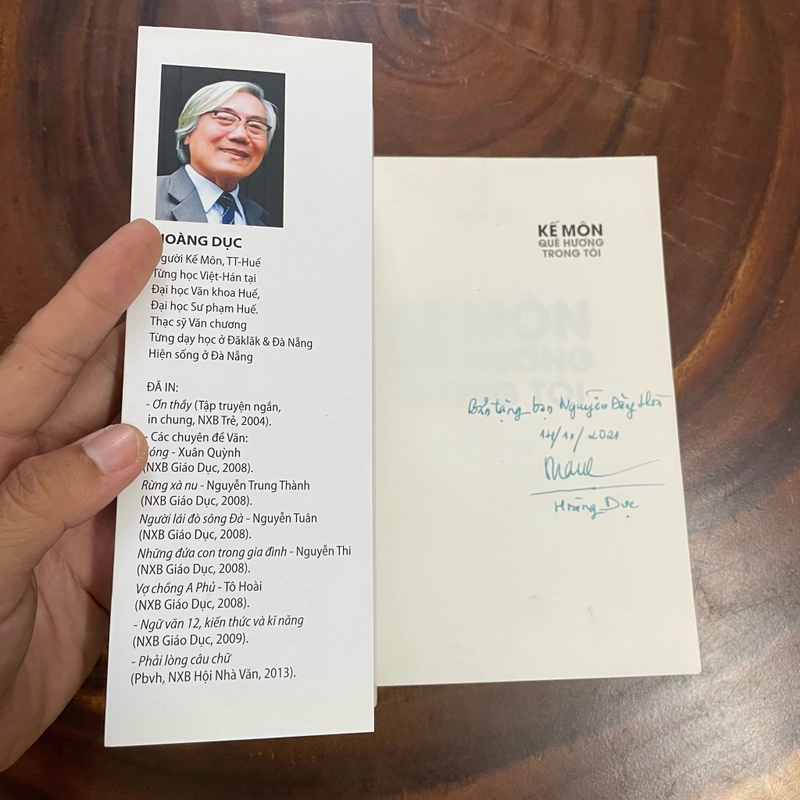 HOÀNG DỤC
Người Kế Môn, TT-Huế
Từng học Việt-Hán tại
Đại học Văn khoa Huế,
Đại học Sư phạm Huế.
Thạc sỹ Văn chương
Từng dạy học ở Đăklăk & Đà Nẵng
Hiện sống ở Đà Nẵng
ĐÃ IN:
- Ơn thầy (Tập truyện ngắn,
in chung, NXB Trẻ, 2004).
- Các chuyên đề Văn:
Sóng - Xuân Quỳnh
(NXB Giáo Dục, 2008).
Rừng xà nu - Nguyễn Trung Thành
(NXB Giáo Dục, 2008).
Người lái đò sông Đà - Nguyễn Tuân
(NXB Giáo Dục, 2008).
Những đứa con trong gia đình - Nguyễn Thi
(NXB Giáo Dục, 2008).
Vợ chồng A Phủ - Tô Hoài
(NXB Giáo Dục, 2008).
- Ngữ văn 12, kiến thức và kĩ năng
(NXB Giáo Dục, 2009).
- Phải lòng câu chữ
(Pbvh, NXB Hội Nhà Văn, 2013).
KẾ MÔN
QUÊ HƯƠNG
TRONG TÔI
Bản tặng bạn Nguyễn Đăng Hoà
14/10/2021
Hoàng Dục